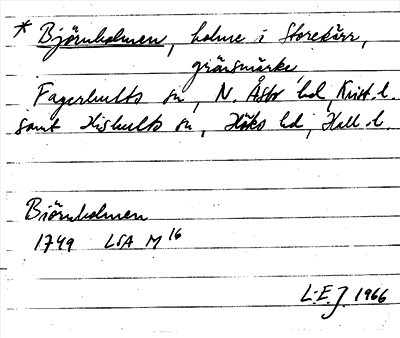 * Björnholmen, holme i Storekärr,
gränsmärke,
Fagerhults sn, N. Åsbo hd, Krist. l.
samt Hishults sn, Höks hd, Hall. l.
Biörnholmen
1749 LSA M 16
L-E. J. 1966